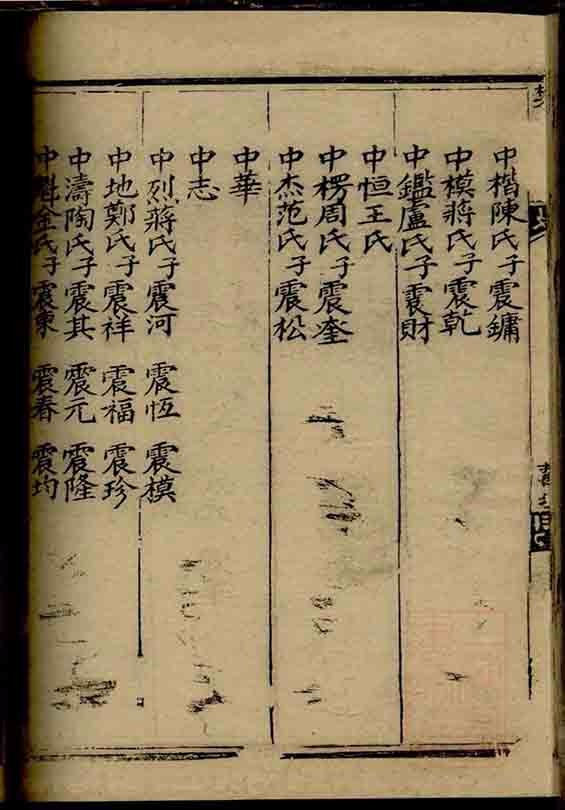 中楷陳氏子震鏞
中模蔣氏子震乾
中鑑盧氏子震財
中恒王氏
中楞周氏子震奎
中杰范氏子震松
中華
中志
中烈蔣氏子震河 震恆 震模
中地鄭氏子震祥 震福 震珍
中濤陶氏子震其 震元 震隆
中魁金氏子震東 震春 震均